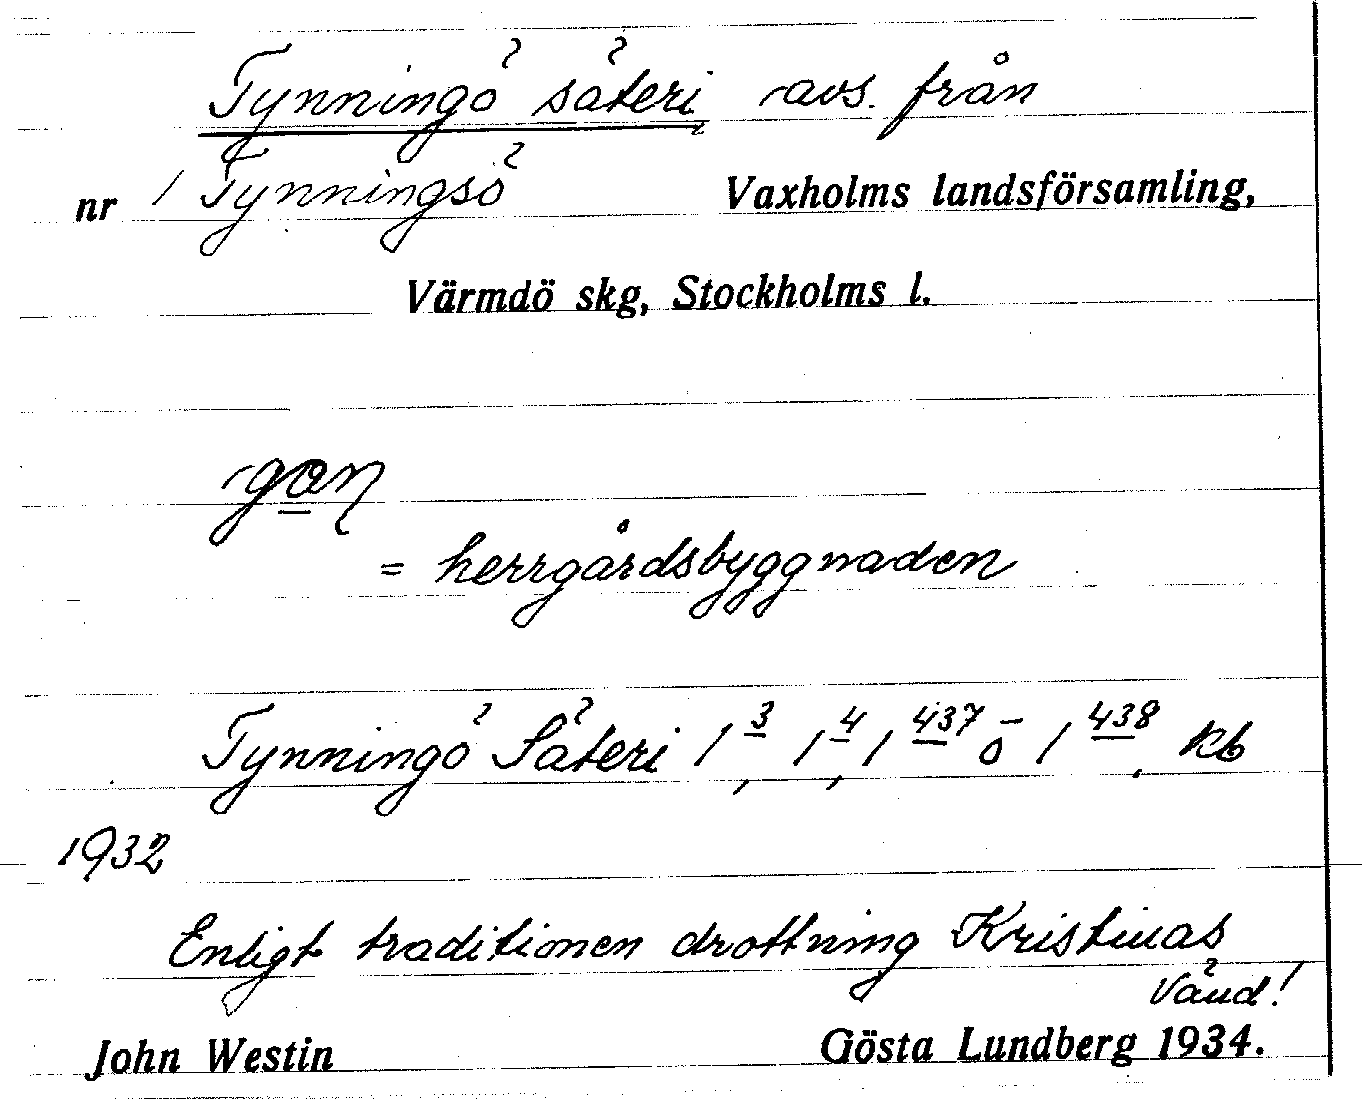 Tynningö säteri avs. från
nr 1 Tynningsö Vaxholms landsförsamling,
Värmdö skg, Stockholms l.
= herrgårdsbyggnaden
Tynningö Säteri 1 3, 1 4, 1 437 o 1 438, kb
1932
Enligt traditionen drottning Kristinas
Vänd!
John Westin Gösta Lundberg 1934.